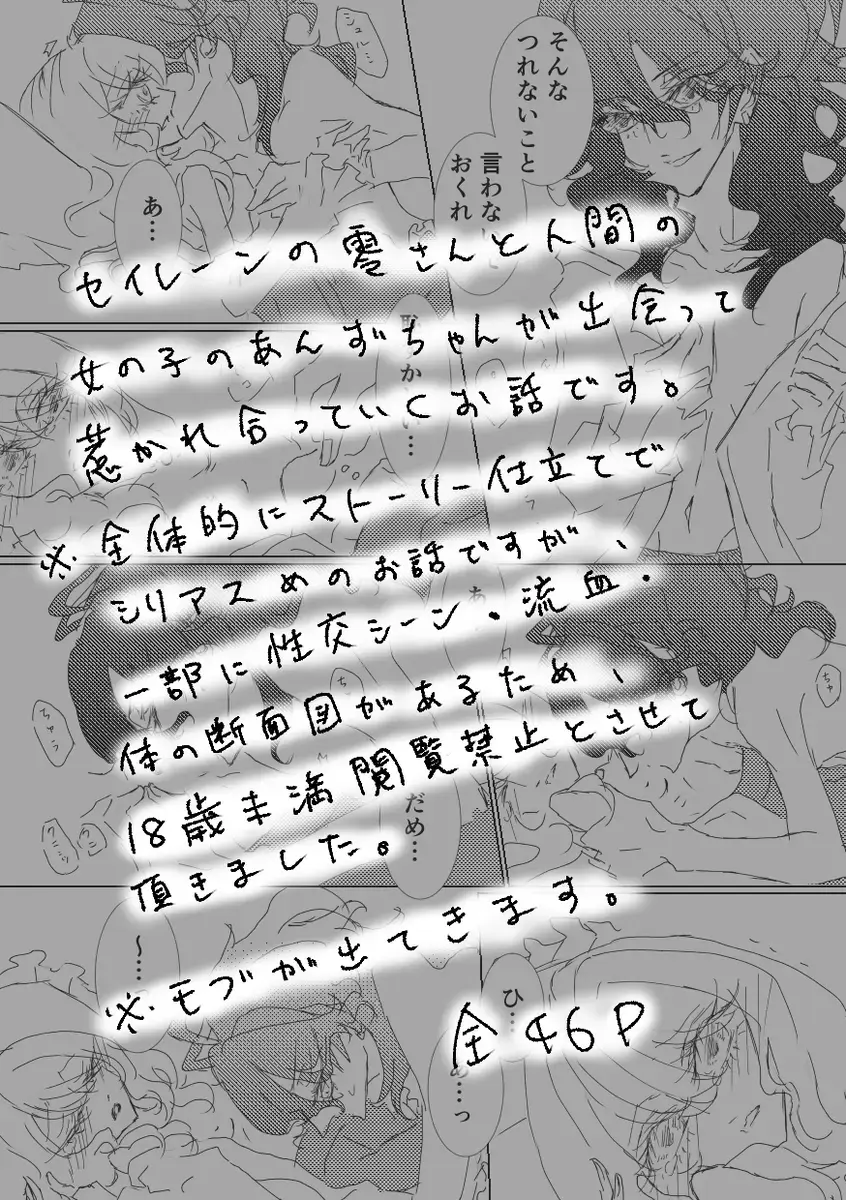 そんな
つれないこと
言わな
おくれ
あ…
セイレーンの零さんと人間の
女の子のあんずちゃんが出会って
惹かれ合っていくお話です。
※全体的にストーリー仕立てで
シリアスめのお話ですが、
一部に性交シーン・流血・
体の断面図があるため、
18歳未満閲覧禁止とさせて
頂きました。
※モブが出てきます。
全46P
か
…
あ
ちゅう
ち
ちゅ
だめ…
〜…
ひ…
…っ